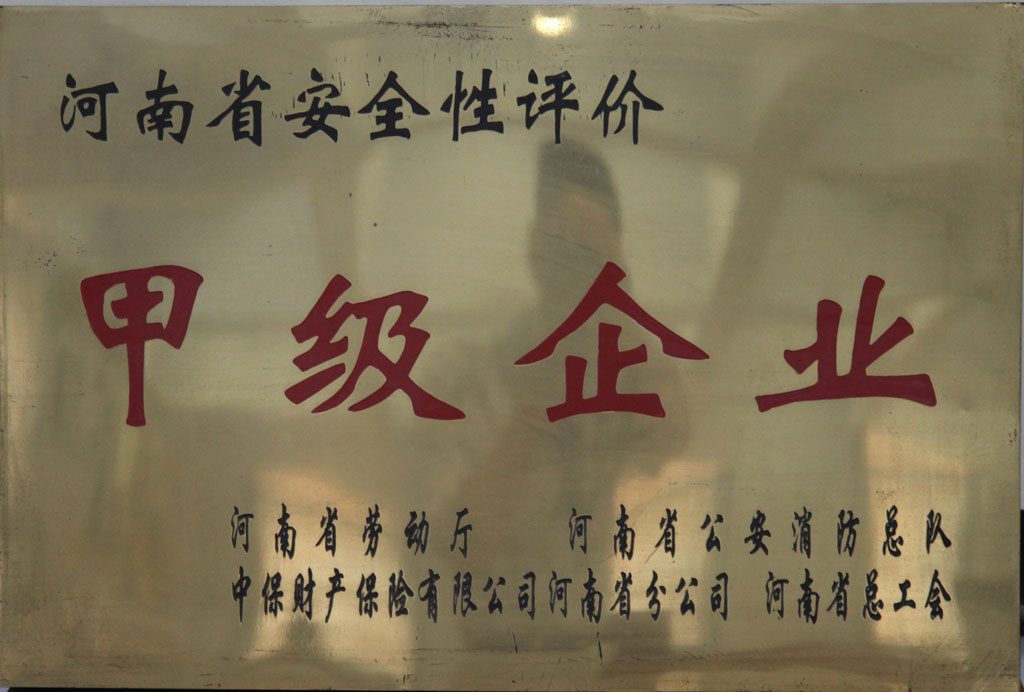 河南省安全性评价
甲级企业
河南省劳动厅 河南省公安消防总队
中保财产保险有限公司河南省分公司 河南省总工会